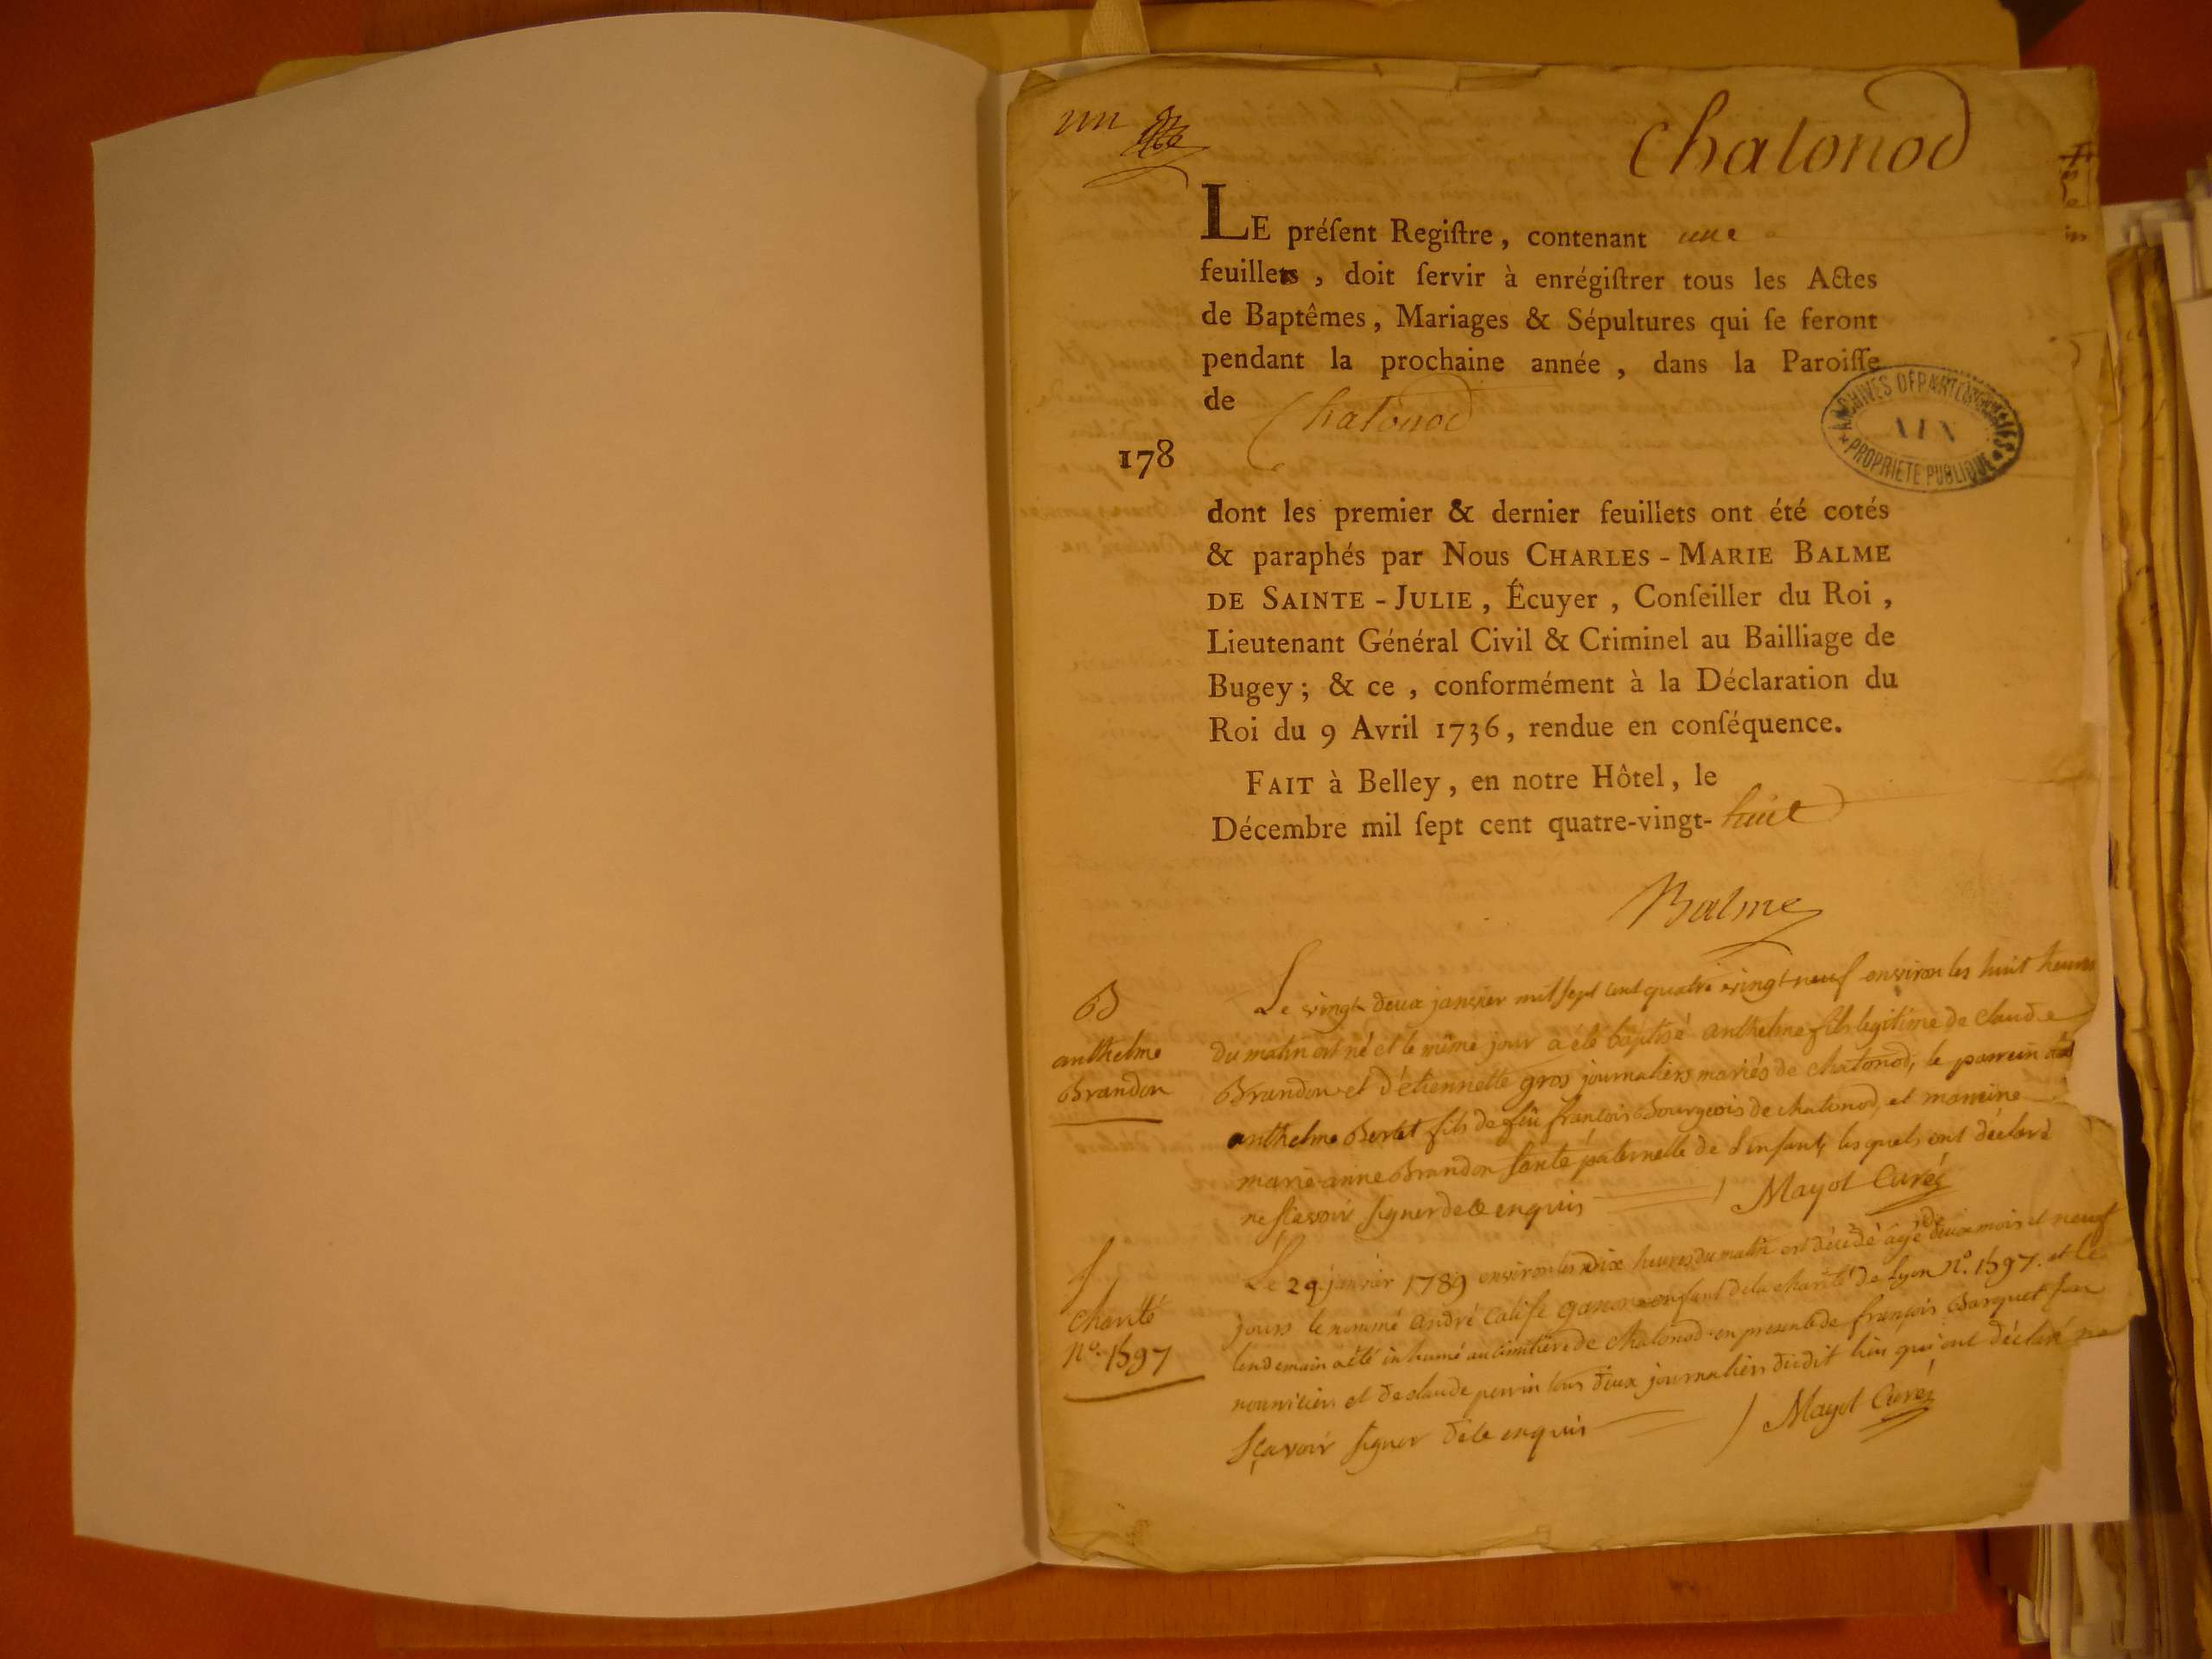 un
Chatonod
LE préſent Regiſtre, contenant une
feuillets, doit ſervir à enrégiſtrer tous les Actes
de Baptêmes, Mariages & Sépultures qui ſe feront
pendant la prochaine année, dans la Paroiſſe
de Chatonod
ARCHIVES DÉPARTEMENTALES
AIN
PROPRIÉTÉ PUBLIQUE
178
dont les premier & dernier feuillets ont été cotés
& paraphés par Nous CHARLES-MARIE BALME
DE SAINTE-JULIE, Écuyer, Conſeiller du Roi,
Lieutenant Général Civil & Criminel au Bailliage de
Bugey; & ce, conformément à la Déclaration du
Roi du 9 Avril 1736, rendue en conſéquence.
FAIT à Belley, en notre Hôtel, le
Décembre mil ſept cent quatre-vingt-huit
Balme
B
anthelme
Brandon
Le vingt deux janvier mil sept cent quatre vingt neuf environ les huit heures
du matin est né et le même jour a été baptisé anthelme fils legitime de claude
Brandon et d'etiennette gros journaliers mariés de chatonod, le parrein a été
anthelme Bertet fils de feu françois Bourgeois de chatonod, et marreine
marie-anne Brandon tante paternelle de l'enfant, lesquels ont déclaré
ne sçavoir signer de ce enquis Mayot Curé
S
charité
n°. 1597
Le 29 janvier 1789 environ les dix heures du matin est décédé âgé de deux mois et neuf
jours le nommé andré calife garçon enfant de la charité de Lyon n°. 1597. et le
lendemain a été inhumé au cimitière de chatonod en presence de françois Barquet son
nourricier et de claude perrin tous deux journaliers dudit lieu qui ont déclaré ne
sçavoir signer de ce enquis Mayot Curé